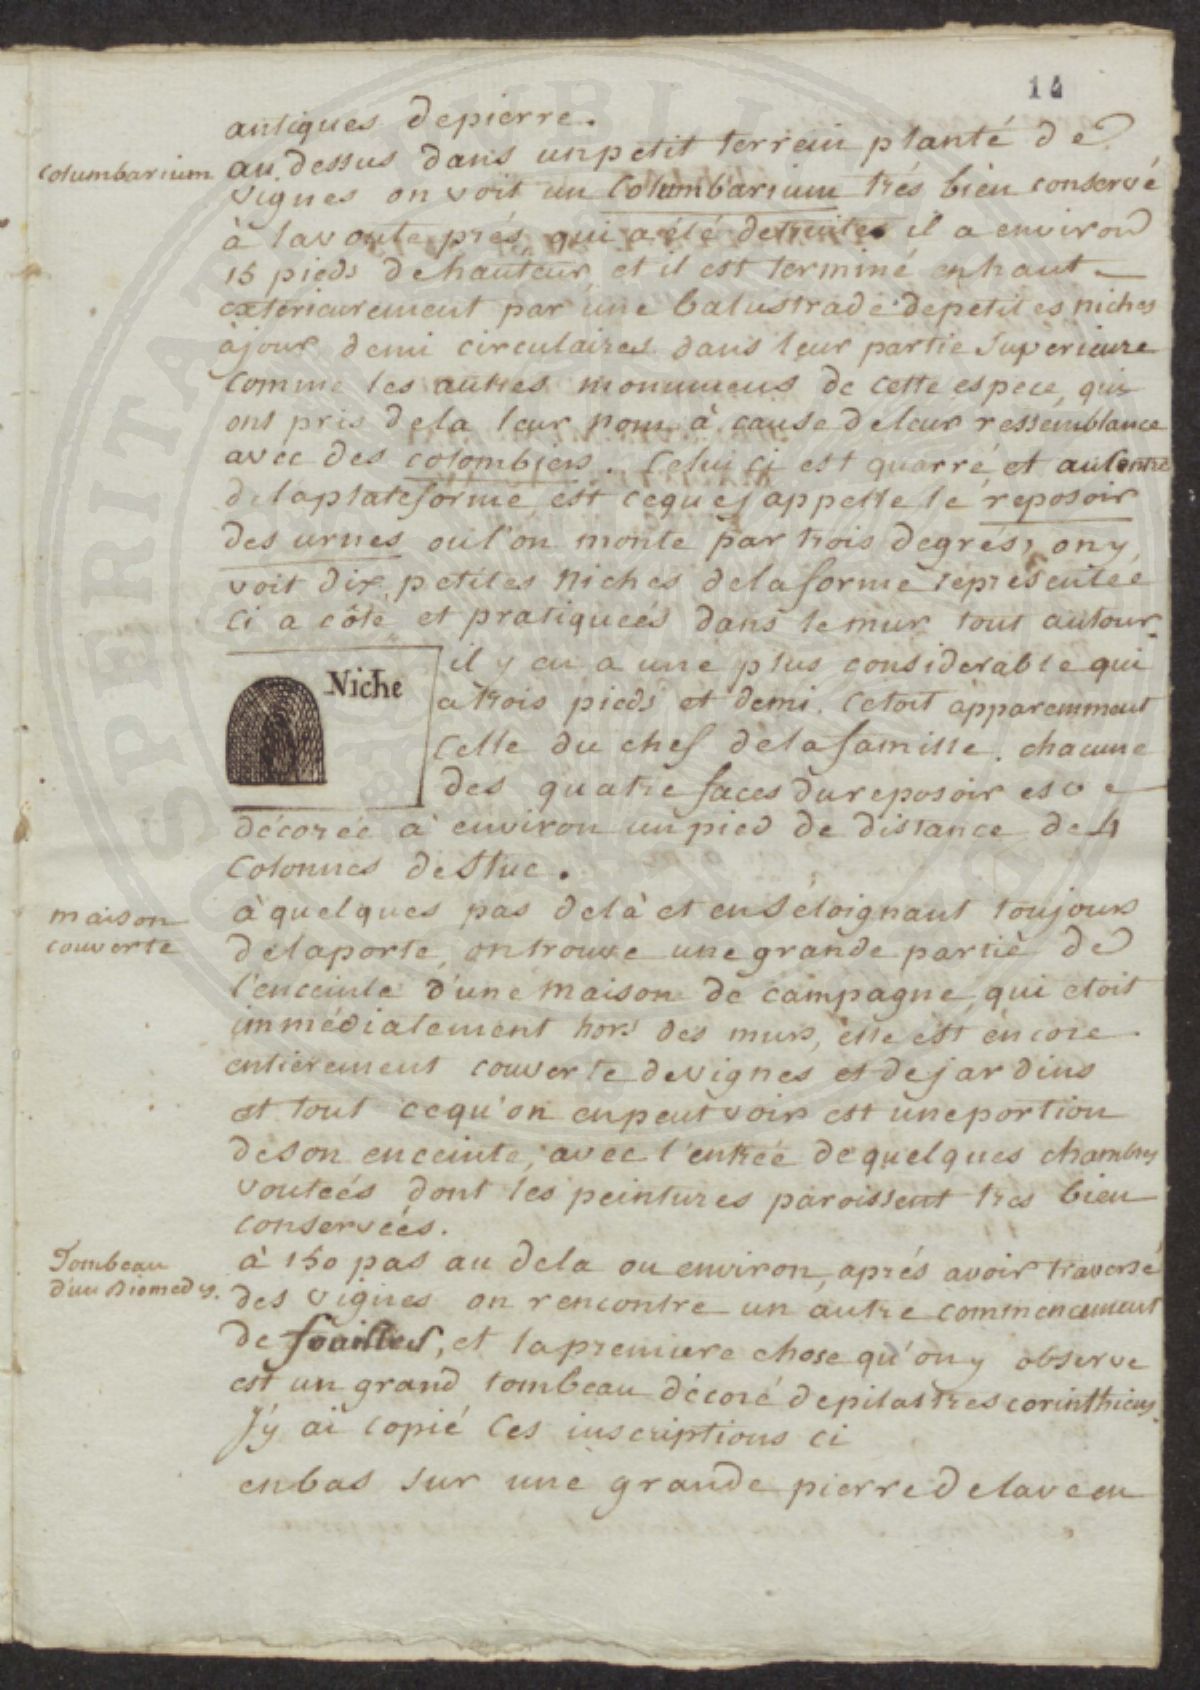 14
antiques de pierre.
columbarium
au dessus dans un petit terrein planté de
vignes on voit un Columbarium trés bien conservé
à la voute prés, qui a été detruite. il a environ
15 pieds de hauteur, et il est terminé en haut
exterieurement par une balustrade de petites niches
à jour demi circulaires dans leur partie superieure
comme les autres monumens de cette espece, qui
ont pris de la leur nom à cause de leur ressemblance
avec des colombiers. Celui ci est quarré, et au centre
de la plateforme est ce que j'appelle le reposoir
des urnes ou l'on monte par trois degrés, on y
voit dix petites Niches de la forme représentée
ci a côte et pratiqueés dans le mur tout autour.
Niche
il y en a une plus considerable qui
a trois pieds et demi. C'etoit apparemment
celle du chef de la famille. chacune
des quatre faces du reposoir est
décorée à environ un pied de distance de 4
Colonnes de Stuc.
maison
couverte
à quelques pas de là et en s'eloignant toujours
de la porte, on trouve une grande partie de
l'enceinte d'une Maison de campagne, qui etoit
immédiatement hors des murs, elle est encore
entierement couverte de vignes et de jardins
et tout ce qu'on en peut voir est une portion
de son enceinte, avec l'entrée de quelques chambres
vouteés dont les peintures paroissent tres bien
conserveés.
Tombeau
d'un Diomedes.
à 150 pas au dela ou environ, aprés avoir traversé
des vignes on rencontre un autre commencement
de fouilles, et la premiere chose qu'on y observe
est un grand tombeau décoré de pilastres corinthiens.
J'y ai copié ces inscriptions ci
en bas sur une grande pierre de lave en